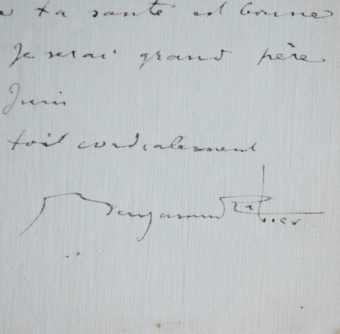 ta santé est bonne
Je serai grand père
Juin
toit cordialement
Benjamin Rabier